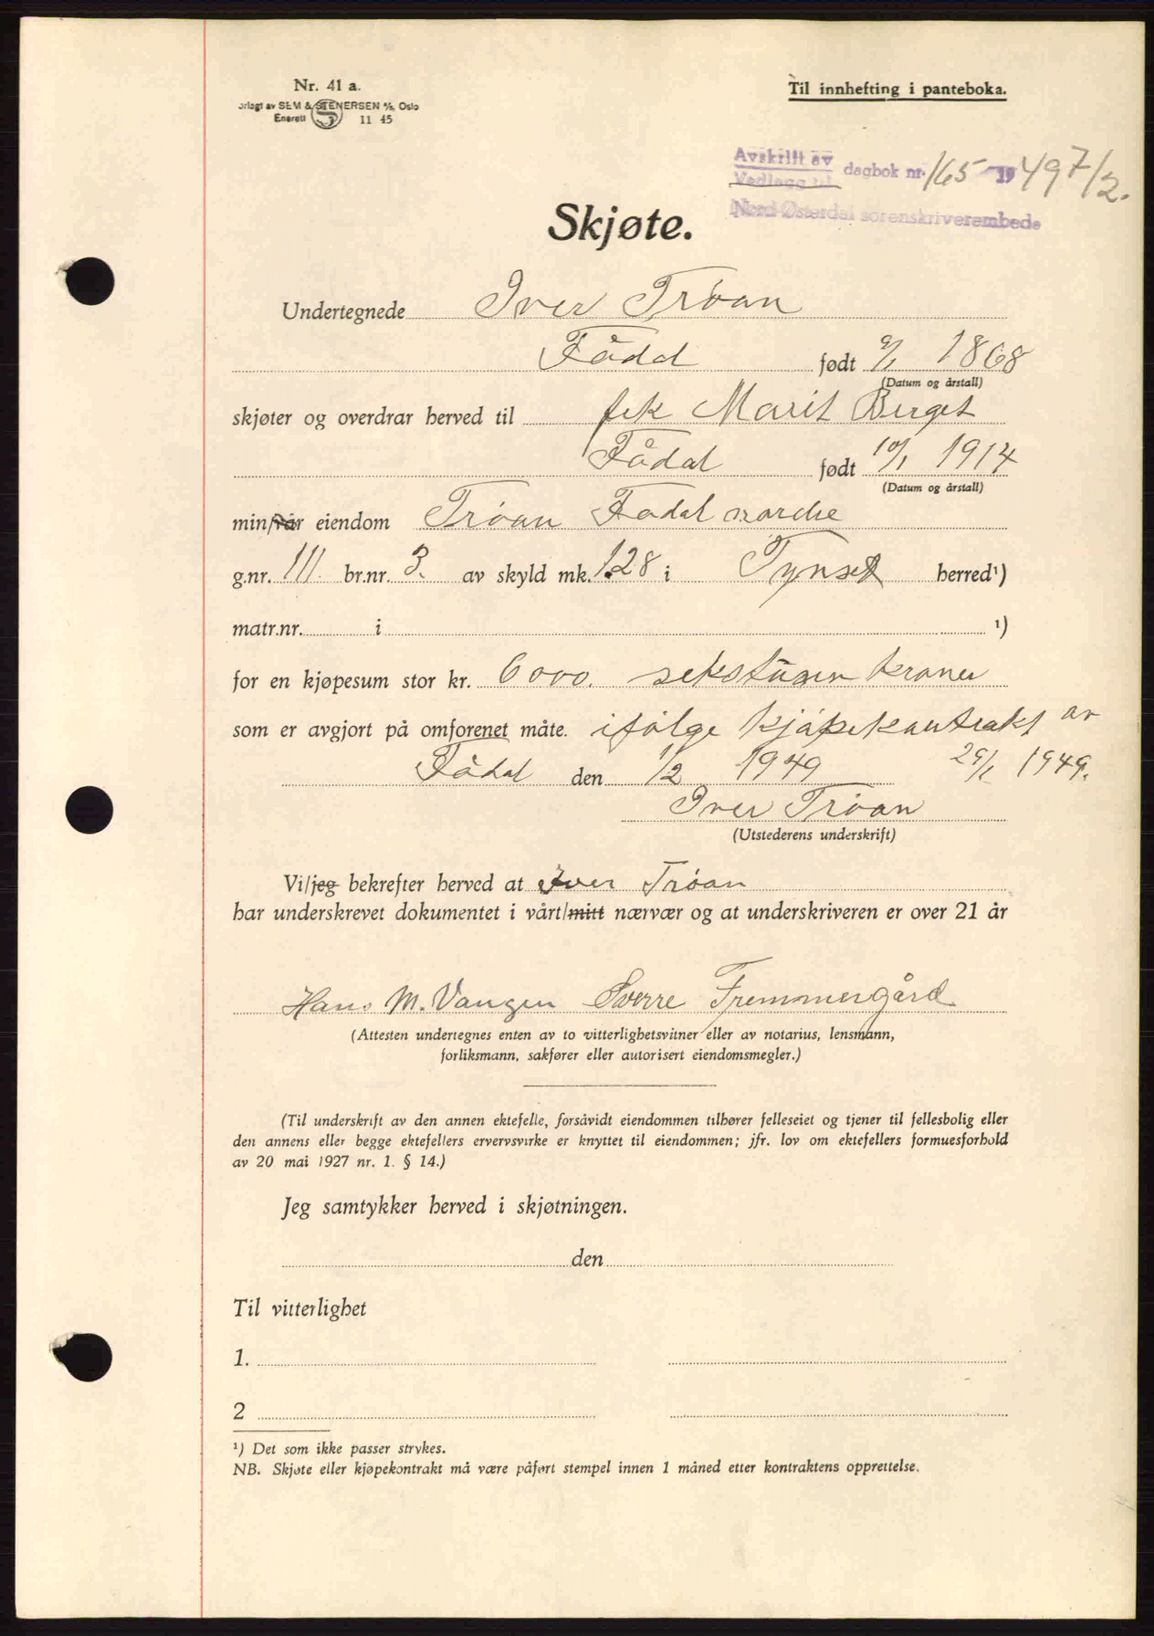 Nr. 41 a.
orlagt av SEM & STENERSEN A/S, Oslo
Enerett S 11 45
Til innhefting i panteboka.
Avskrift av
Vedlegg til
dagbok nr. 165 - 1949 7/2.
Nord Østerdal sorenskriverembede
Skjøte.
Undertegnede Iver Trøan
Fådal født 9/1 1868
(Datum og årstall)
skjøter og overdrar herved til frk Marit Berget
Fådal født 10/1 1914
(Datum og årstall)
min/vår eiendom Trøan Fådal nordre
g.nr. 111. br.nr. 3. av skyld mk. 1.28 i Tynset herred¹)
matr.nr. i ¹)
for en kjøpesum stor kr. 6000. sekstusen kroner
som er avgjort på omforenet måte. ifølge kjøpekontrakt av
Fådal den 1/2 1949 29/1 1949.
Iver Trøan
(Utstederens underskrift)
Vi/jeg bekrefter herved at Iver Trøan
har underskrevet dokumentet i vårt/mitt nærvær og at underskriveren er over 21 år
Hans M. Vangen Sverre Fremmergård
(Attesten undertegnes enten av to vitterlighetsvitner eller av notarius, lensmann,
forliksmann, sakfører eller autorisert eiendomsmegler.)
(Til underskrift av den annen ektefelle, forsåvidt eiendommen tilhører felleseiet og tjener til fellesbolig eller
den annens eller begge ektefellers ervervsvirke er knyttet til eiendommen; jfr. lov om ektefellers formuesforhold
av 20 mai 1927 nr. 1. § 14.)
Jeg samtykker herved i skjøtningen.
den
Til vitterlighet
1.
2
¹) Det som ikke passer strykes.
NB. Skjøte eller kjøpekontrakt må være påført stempel innen 1 måned etter kontraktens opprettelse.